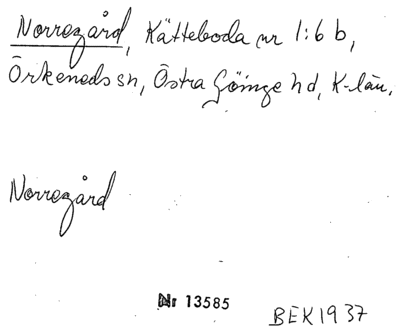 Norregård, Kätteboda nr 1:6 b,
Örkeneds sn, Östra Göinge hd, K-län.
Norregård
Nr 13585
BEK1937